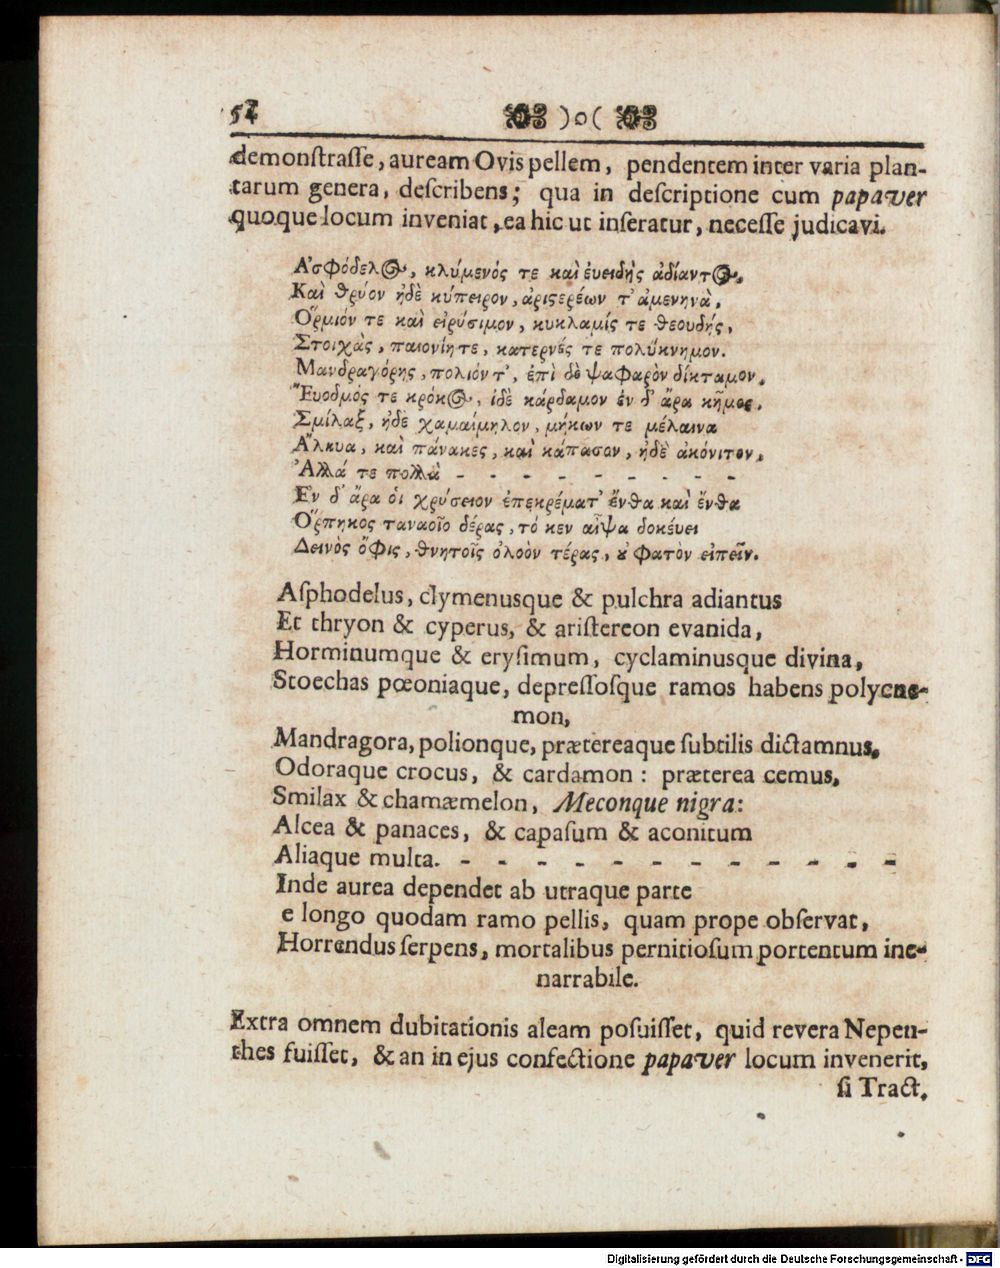 54 )o(
demonſtraſſe, auream Ovis pellem, pendentem inter varia plan-
tarum genera, deſcribens; qua in deſcriptione cum papaver
quoque locum inveniat, ea hic ut inſeratur, neceſſe judicavi.
Ἀσφόδελος, κλύμενός τε καὶ ἐυειδὴς ἀδίαντος,
Καὶ θρύον ἠδὲ κύπειρον, ἀριϛερέων τ' ἀμενηνὰ,
Ὅρμιόν τε καὶ εἰρύσιμον, κυκλαμίς τε θεουδής,
Στοιχὰς, παιονίητε, κατερνές τε πολύκνημον.
Μανδραγόρης, πολιόν τ', ἐπὶ δὲ ψαφαρὸν δίκταμον,
Ἔυοδμός τε κρόκος, ἰδὲ κάρδαμον ἐν δ' ἄρα κῆμος,
Σμίλαξ, ἠδὲ χαμαίμηλον, μήκων τε μέλαινα
Ἄλκυα, καὶ πάνακες, καὶ κάπασον, ἠδὲ ἀκόνιτον,
Ἀλλά τε πολλὰ - - - - - - - -
Ἐν δ' ἄρα ὁι χρύσειον ἐπεκρέματ' ἔνθα καὶ ἔνθα
Ὅρπηκος ταναοῖο δέρας, τό κεν αἶψα δοκέυει
Δεινὸς ὄφις, θνητοῖς ὀλοὸν τέρας, ȣ φατὸν εἰπεῖν.
Aſphodelus, clymenusque & pulchra adiantus
Et thryon & cyperus, & ariſtereon evanida,
Horminumque & eryſimum, cyclaminusque divina,
Stoechas pœoniaque, depreſſoſque ramos habens polycne-
mon,
Mandragora, polionque, prætereaque ſubtilis dictamnus,
Odoraque crocus, & cardamon : præterea cemus,
Smilax & chamæmelon, Meconque nigra:
Alcea & panaces, & capaſum & aconitum
Aliaque multa. - - - - - - - - - - - -
Inde aurea dependet ab utraque parte
e longo quodam ramo pellis, quam prope obſervat,
Horrendus ſerpens, mortalibus pernitioſum portentum ine-
narrabile.
Extra omnem dubitationis aleam poſuiſſet, quid revera Nepen-
thes fuiſſet, & an in ejus confectione papaver locum invenerit,
ſi Tract.
Digitalisierung gefördert durch die Deutsche Forschungsgemeinschaft - DFG